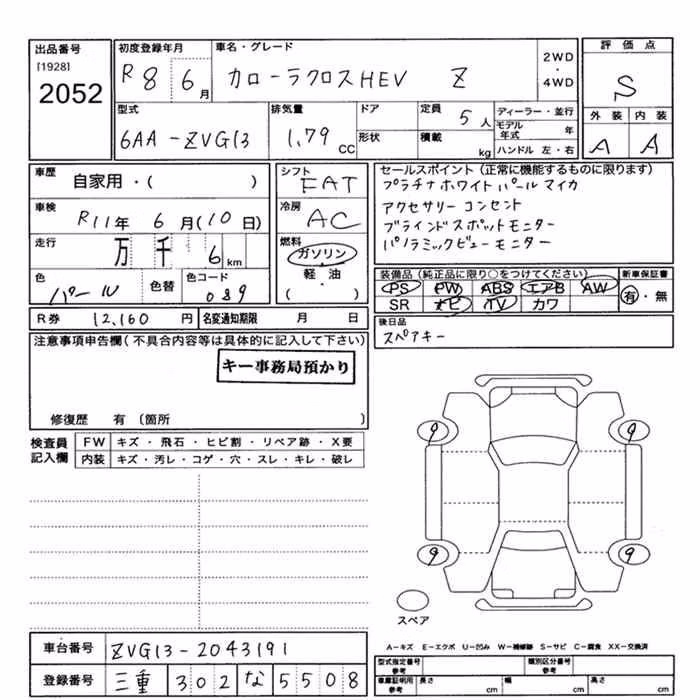 出品番号
[1928]
2052
初度登録年月
R 8 6 月
車名・グレード
カローラクロスHEV Z
2WD
・
4WD
評価点
S
外装 内装
A A
型式
6AA-ZVG13
排気量
1.79 CC
ドア
形状
定員 5 人
積載 kg
ディーラー・並行
モデル年式 年
ハンドル 左・右
車歴
自家用・( )
車検
R11年 6月(10日)
走行
万 千 6 km
色
パール
色替
色コード
089
シフト
FAT
冷房
AC
燃料
ガソリン
・
軽・油
( )
セールスポイント(正常に機能するものに限ります)
プラチナホワイトパールマイカ
アクセサリーコンセント
ブラインドスポットモニター
パノラミックビューモニター
装備品(純正品に限り○をつけてください)
PS PW ABS エアB AW
SR ナビ TV カワ
新車保証書
有・無
R券 12,160 円
名変通知期限 月 日
後日品
スペアキー
注意事項申告欄(不具合内容等は具体的に記入して下さい)
キー事務局預かり
修復歴 有〔箇所 〕
検査員
記入欄
FW キズ・飛石・ヒビ割・リペア跡・X要
内装 キズ・汚レ・コゲ・穴・スレ・キレ・破レ
9 9
9 9
スペア
車台番号 ZVG13-2043191
登録番号 三重 302 な 5508
A-キズ E-エクボ U-凹み W-補修跡 S-サビ C-腐食 XX-交換済
型式指定番号
参考
類別区分番号
参考
車庫証明用
参考
長さ cm
幅 cm
高さ cm